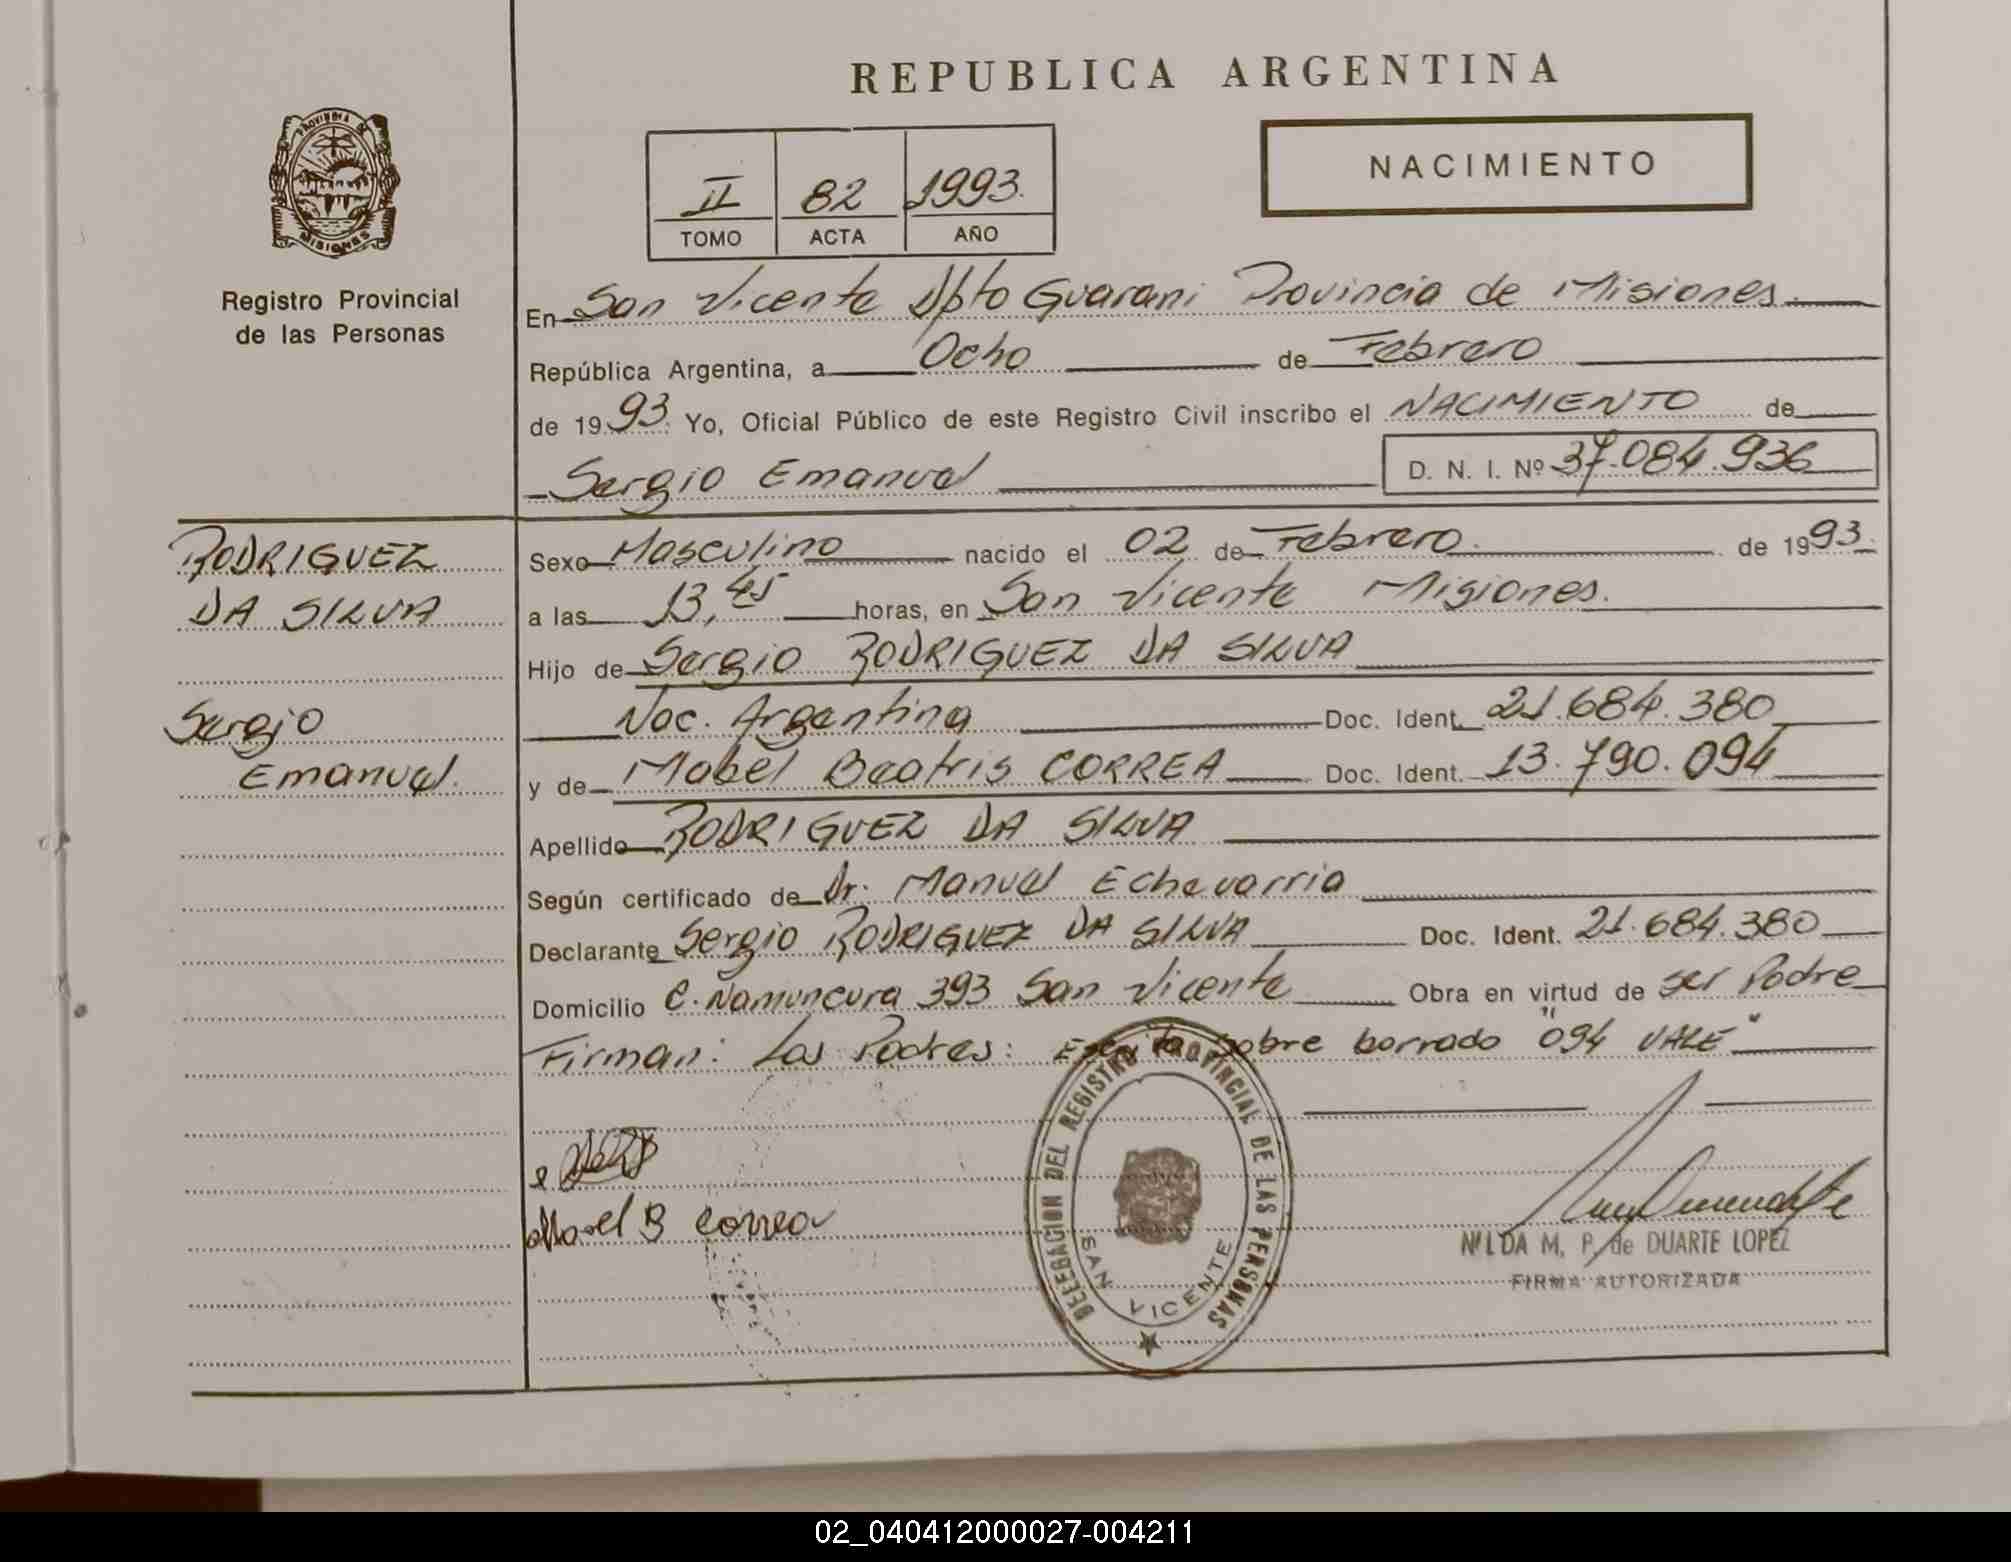 REPUBLICA ARGENTINA
NACIMIENTO
PROVINCIA DE
MISIONES
Registro Provincial
de las Personas
II 82 1993.
TOMO ACTA AÑO
En San Vicente Dpto Guarani Provincia de Misiones.
República Argentina, a Ocho de Febrero
de 1993. Yo, Oficial Público de este Registro Civil inscribo el NACIMIENTO de
Sergio Emanuel D. N. I. Nº 37.084.936
RODRIGUEZ
DA SILVA
Sergio
Emanuel.
Sexo Masculino nacido el 02 de Febrero. de 1993.
a las 13,45 horas, en San Vicente Misiones.
Hijo de Sergio RODRIGUEZ DA SILVA
Nac. Argentina Doc. Ident. 21.684.380
y de Mabel Beatris CORREA Doc. Ident. 13.790.094
Apellido RODRIGUEZ DA SILVA
Según certificado de Dr. Manuel Echevarria
Declarante Sergio RODRIGUEZ DA SILVA Doc. Ident. 21.684.380
Domicilio C. Namuncura 393 San Vicente Obra en virtud de ser Padre
Firman: Los Padres: Escrito sobre borrado "094 VALE"
Mabel B Correa
DELEGACION DEL REGISTRO PROVINCIAL DE LAS PERSONAS
SAN VICENTE
NILDA M. P. de DUARTE LOPEZ
FIRMA AUTORIZADA
02_040412000027-004211